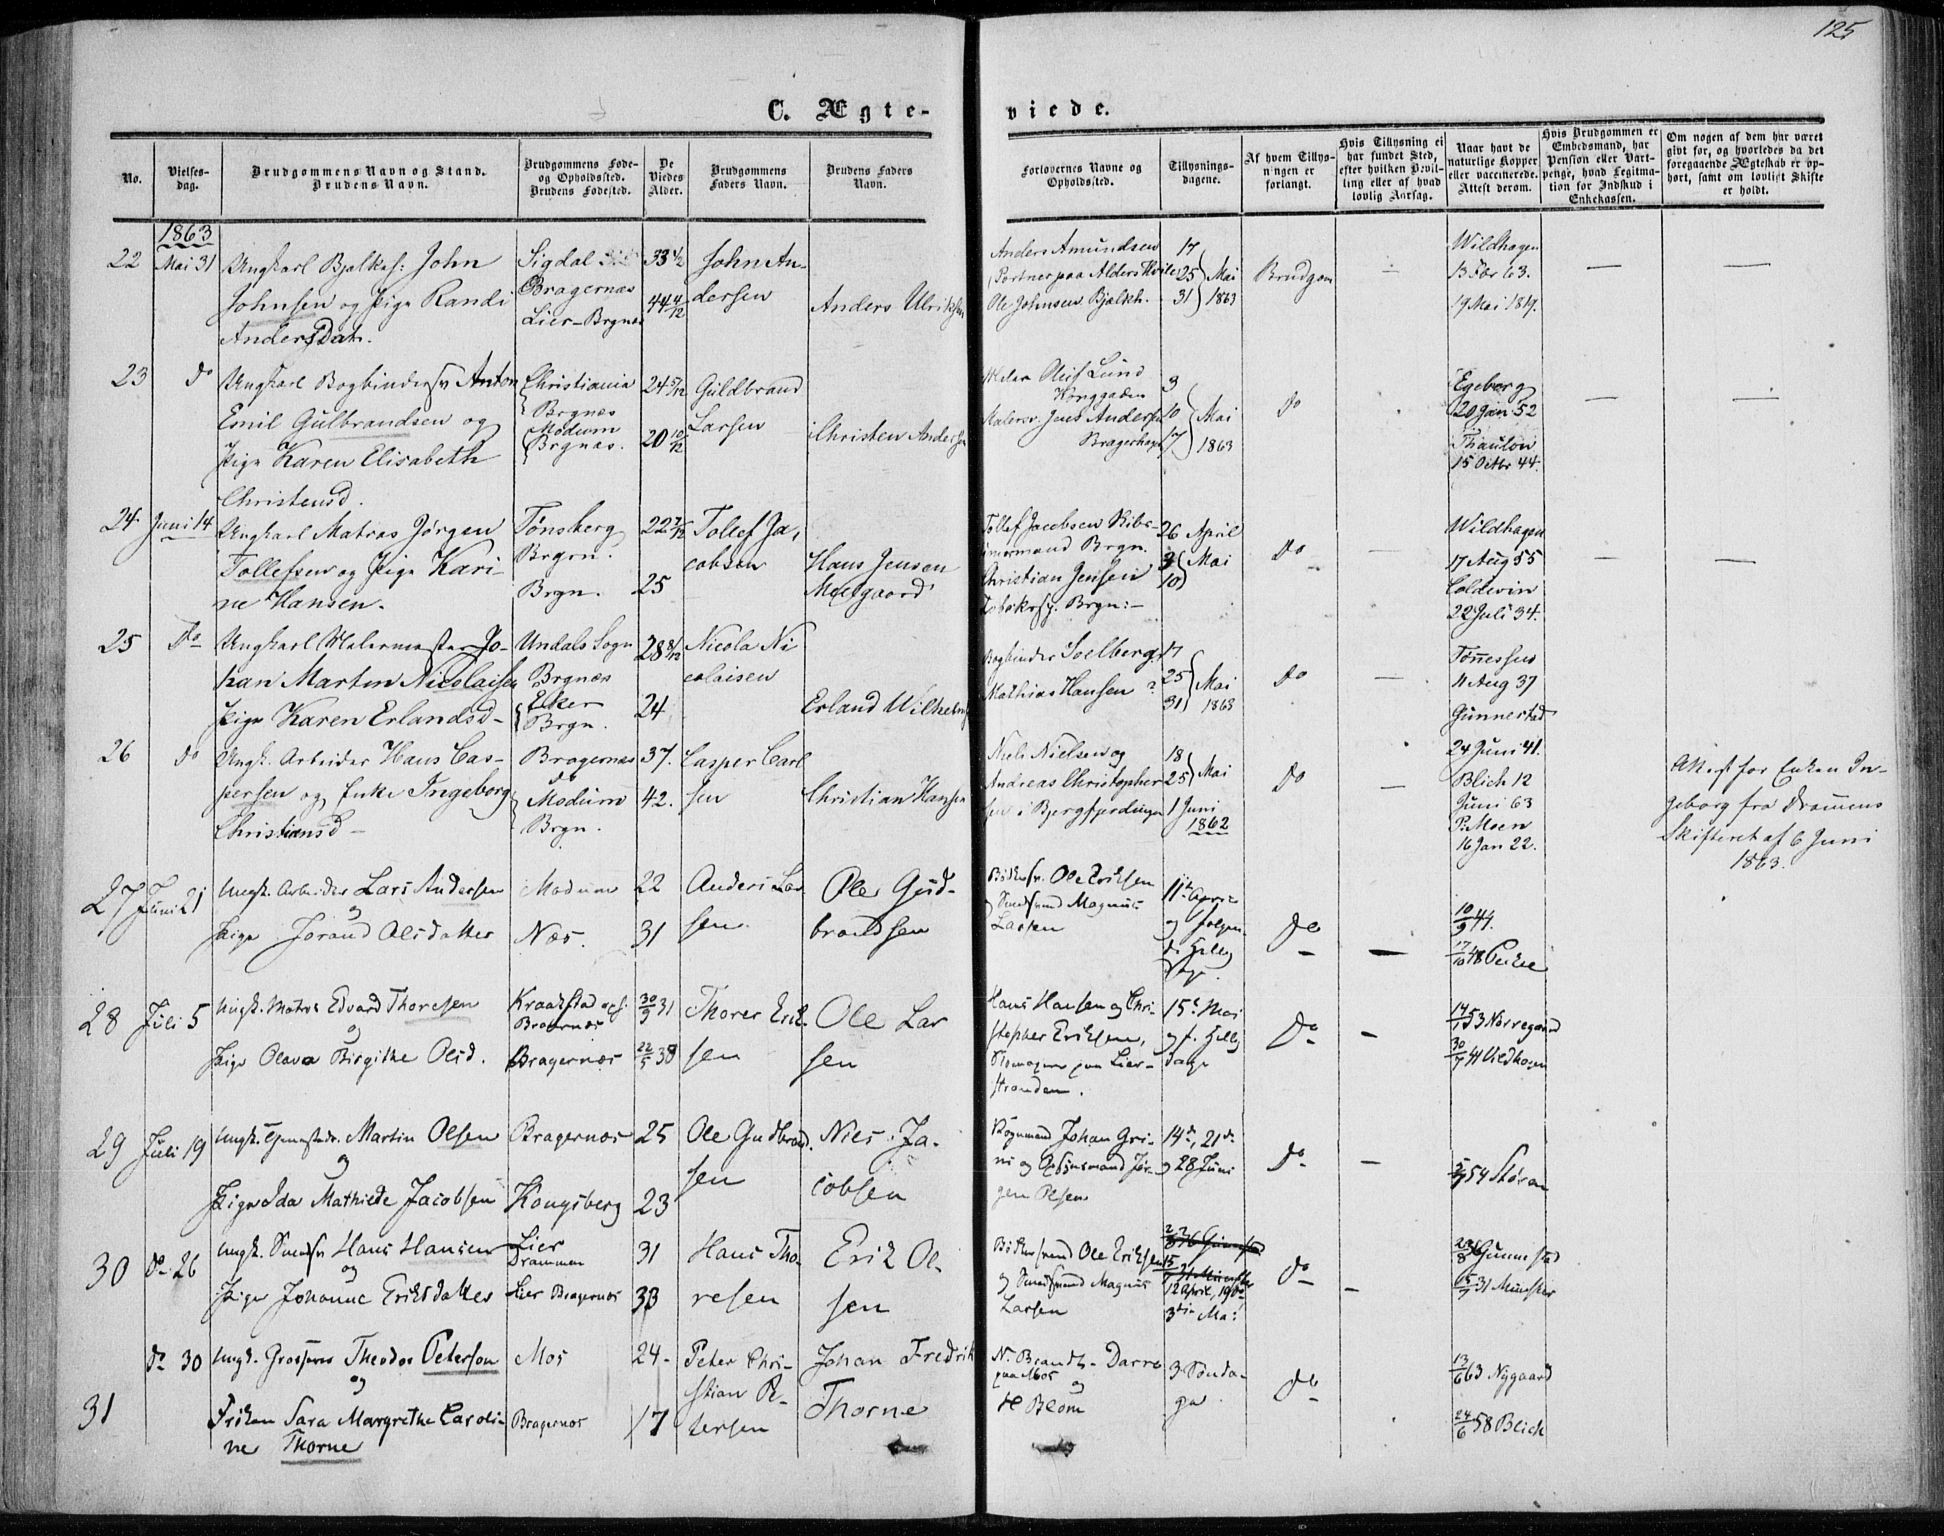 125
C. Ægte-
viede.
No.
Vielses-
dag.
Brudgommens Navn og Stand.
Brudens Navn.
Brudgommens Føde-
og Opholdssted.
Brudens Fødested.
De
Viedes
Alder.
Brudgommens
Faders Navn.
Brudens Faders
Navn.
Forlovernes Navne og
Opholdssted.
Tillysnings-
dagene.
Af hvem Tillys-
ningen er
forlangt.
Hvis Tillysning ei
har fundet Sted,
efter hvilken Bevil-
ling eller af hvad
lovlig Aarsag.
Naar havt de
naturlige Kopper
eller vaccinerede.
Attest derom.
Hvis Brudgommen er
Embedsmand, har
Pension eller Vart-
penge, hvad Legitima-
tion for Indskud i
Enkekassen.
Om nogen af dem har været
gift før, og hvorledes da det
foregaaende Ægteskab er op-
hørt, samt om lovligt Skifte
er holdt.
1863
22
Mai 31
Ungkarl Bjelkh: John
Johnsen og Pige Randi
AndersDat.
Sigdal
Bragernæs
Lier-Brgnæs
33 1/2
44 4/12
John An-
dersen
Anders Ulriksen
Anders Amundsen
Portner paa Alders Hvile
Ole Johnsen Bjelkh.
17
25 Mai
31 1863
Brudgom
—
Wildhagen
13 Febr 63.
19 Mai 1819.
—
—
23
do
Ungkarl Bogbindersv Anton
Emil Gulbrandsen og
Pige Karen Elisabeth
Christensd.
Christiania
Brgnæs
Modum
Brgnæs.
24 5/12
20 10/12
Guldbrand
Larsen
Christen Andersen
Maler Oluf Lund
Konggaden
Malersv. Jens Andersen
Bragerhagen
3
10 Mai
17 1863
do
Egeberg
20 Jan 52
Thaulow
15 Octbr 44.
—
—
24
Juni 14
Ungkarl Matros Jørgen
Tollefsen og Pige Kari-
ne Hansen.
Tønsberg
Brgrn.
Brgn.
22 7/12
25
Tollef Ja-
cobsen
Hans Jensen
Meegaard
Tollef Jacobsen Skibs-
tømmermand Brgn.
Christian Jensen
Tobakssp. Brgn:-
26 April
3 Mai
10
Do
—
Wildhagen
17 Aug 55
Coldevin
22 Juli 34.
—
—
25
Do
Ungkarl Malermester Jo-
han Martin Nicolaisen
Pige Karen Erlandsd-
Undals Sogn
Brgnæs
Eker
Brgn.
28 8/12
24
Nicola Ni
colaisen
Erland Wilhelms
Bogbinder Solberg
Mathias Hansen
17
25 Mai
31 1863
Do
—
Tønessen
11 Aug 37
Gunnestad
24 Juni 41.
26
do
Ungk. Arbeider Hans Cas-
persen og Enke Ingeborg
Christiansd-
Bragernæs
Modum
Brgn.
37.
42.
Casper Carl
sen
Christian Hansen
Niels Nielsen og
Andreas Christopher
sen i Bjergfjerdingen
18
25 Mai
1 Juni
1862
Do
—
Blich 12
Juni 63
P. Moen
16 Jan 22.
Attest for Enken In-
geborg fra Drammens
Skifteret af 6 Juni
1863.
27
Juni 21
Ungk. Arbeider Lars Andersen
og
Pige Jorand Olsdatter
Modum
Næs.
22
31
Anders Lar
sen.
Ole Gud-
brandsen
Bødkersv. Ole Eriksen
Smedsvend Magnus
Larsen
11te April
og følgen
de Hellig
Dage.
Do
—
10/9 44.
17/10 48
28
Juli 5
Ungk. Matros Edvard Thoresen
og
Pige Olava Birgithe Olsd.
Kraakstad
Bragernæs
Bragernæs
30/3 31
22/5 38
Thorer Erik
sen
Ole Lar
sen
Hans Hansen og Chri-
stopher Eriksen,
paa Lier-
stranden.
15de Mai
og f. Hellig
dage
Do
—
14/1 53 Nørregaard
30/7 41 Vildhagen
29
Juli 19
Ungk. Martin Olsen
og
Pige Ida Mathilde Jacobsen
Bragernæs
Kongsberg
25
23
Ole Gudbrand
sen
Niels Ja-
cobsen
Johan Gri-
ni og Jør-
gen Olsen
14de, 21de
og 28 Juni
Do
—
5/7 54 Støren
30
do 26
Ungk. Smedsv Hans Hansen
og
Pige Johanne Eriksdatter
Lier
Drammen
Lier Bragernæs
31
33
Hans Tho-
resen
Erik Ol-
sen
Bødkersvend Ole Eriksen
og Smedsvend Magnus
Larsen
12 April, 19de
3die Mai
Do
—
28/8 36 Gunnestad
15/7 31 Münster
31
do 30
Ungk. Grosserer Theodor Petersen
og
Frøken Sara Margrethe Caroli-
ne Thorne
Mos
Bragernæs
24-
17
Peter Chri-
stian Pe-
tersen
Johan Fredrik
Thorne
N. Brandt-Darre
paa Mos
og
H Blom
3 Sønda-
ge
do
13/6 63 Nygaard
24/6 58 Blich